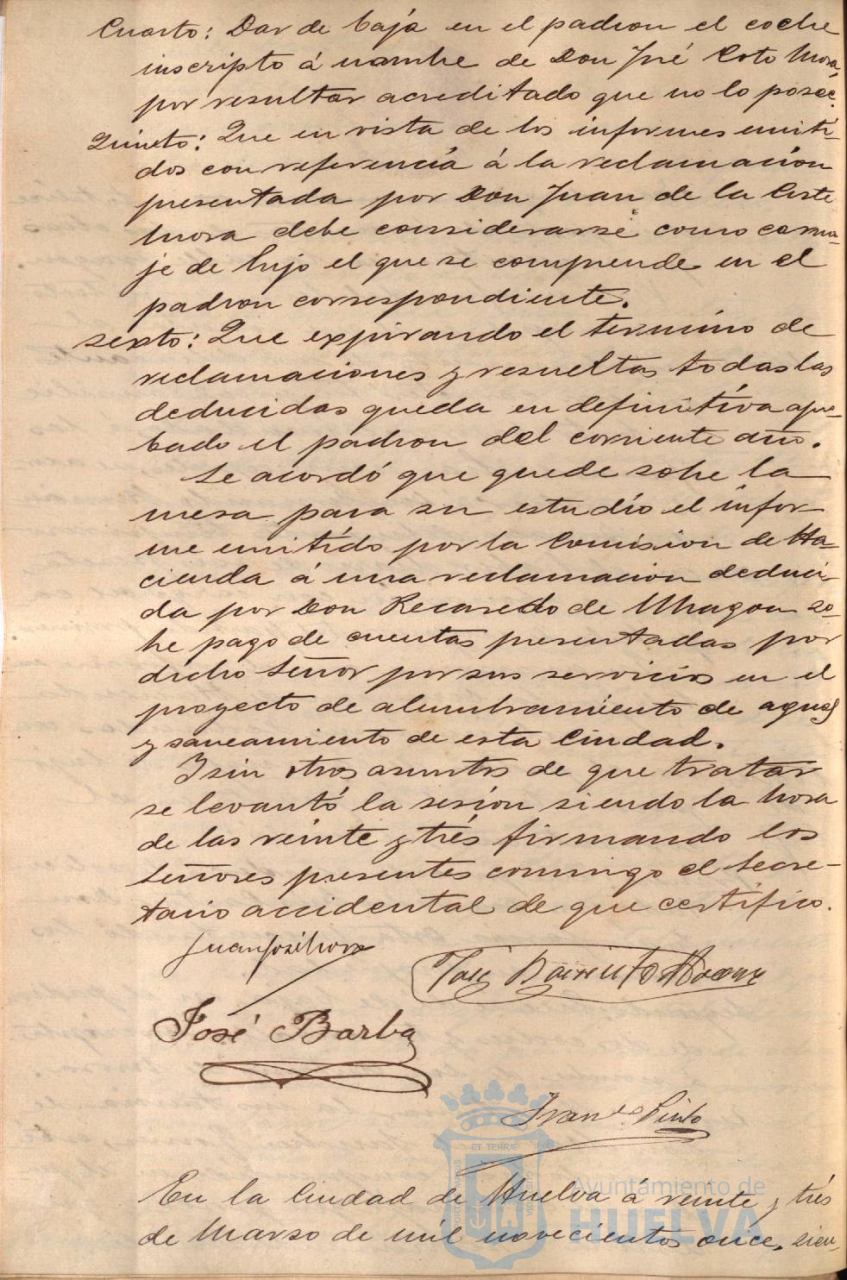 Cuarto: Dar de baja en el padron el coche
inscripto á nombre de Don José Coto Mora,
por resultar acreditado que no lo posee.
Quinto: Que en vista de los informes emiti-
dos con referencia á la reclamacion
presentada por Don Juan de la Corte
Mora debe considerarse como carrua-
je de lujo el que se comprende en el
padron correspondiente.
Sexto: Que expirando el termino de
reclamaciones y resueltas todas las
deducidas queda en definitiva apro-
bado el padron del corriente año.
Se acordó que quede sobre la
mesa para su estudio el infor-
me emitido por la Comision de Ha-
cienda á una reclamacion deduci-
da por Don Recaredo de Uhagon so-
bre pago de cuentas presentadas por
dicho Señor por sus servicios en el
proyecto de alumbramiento de aguas
y saneamiento de esta Ciudad.
Y sin otros asuntos de que tratar
se levantó la sesion siendo la hora
de las veinte y trés firmando los
Señores presentes conmigo el Secre-
tario accidental de que certifico.
José Barba
Pinto
En la Ciudad de Huelva á veinte y trés
de Marzo de mil novecientos once, sien-
Ayuntamiento de
HUELVA